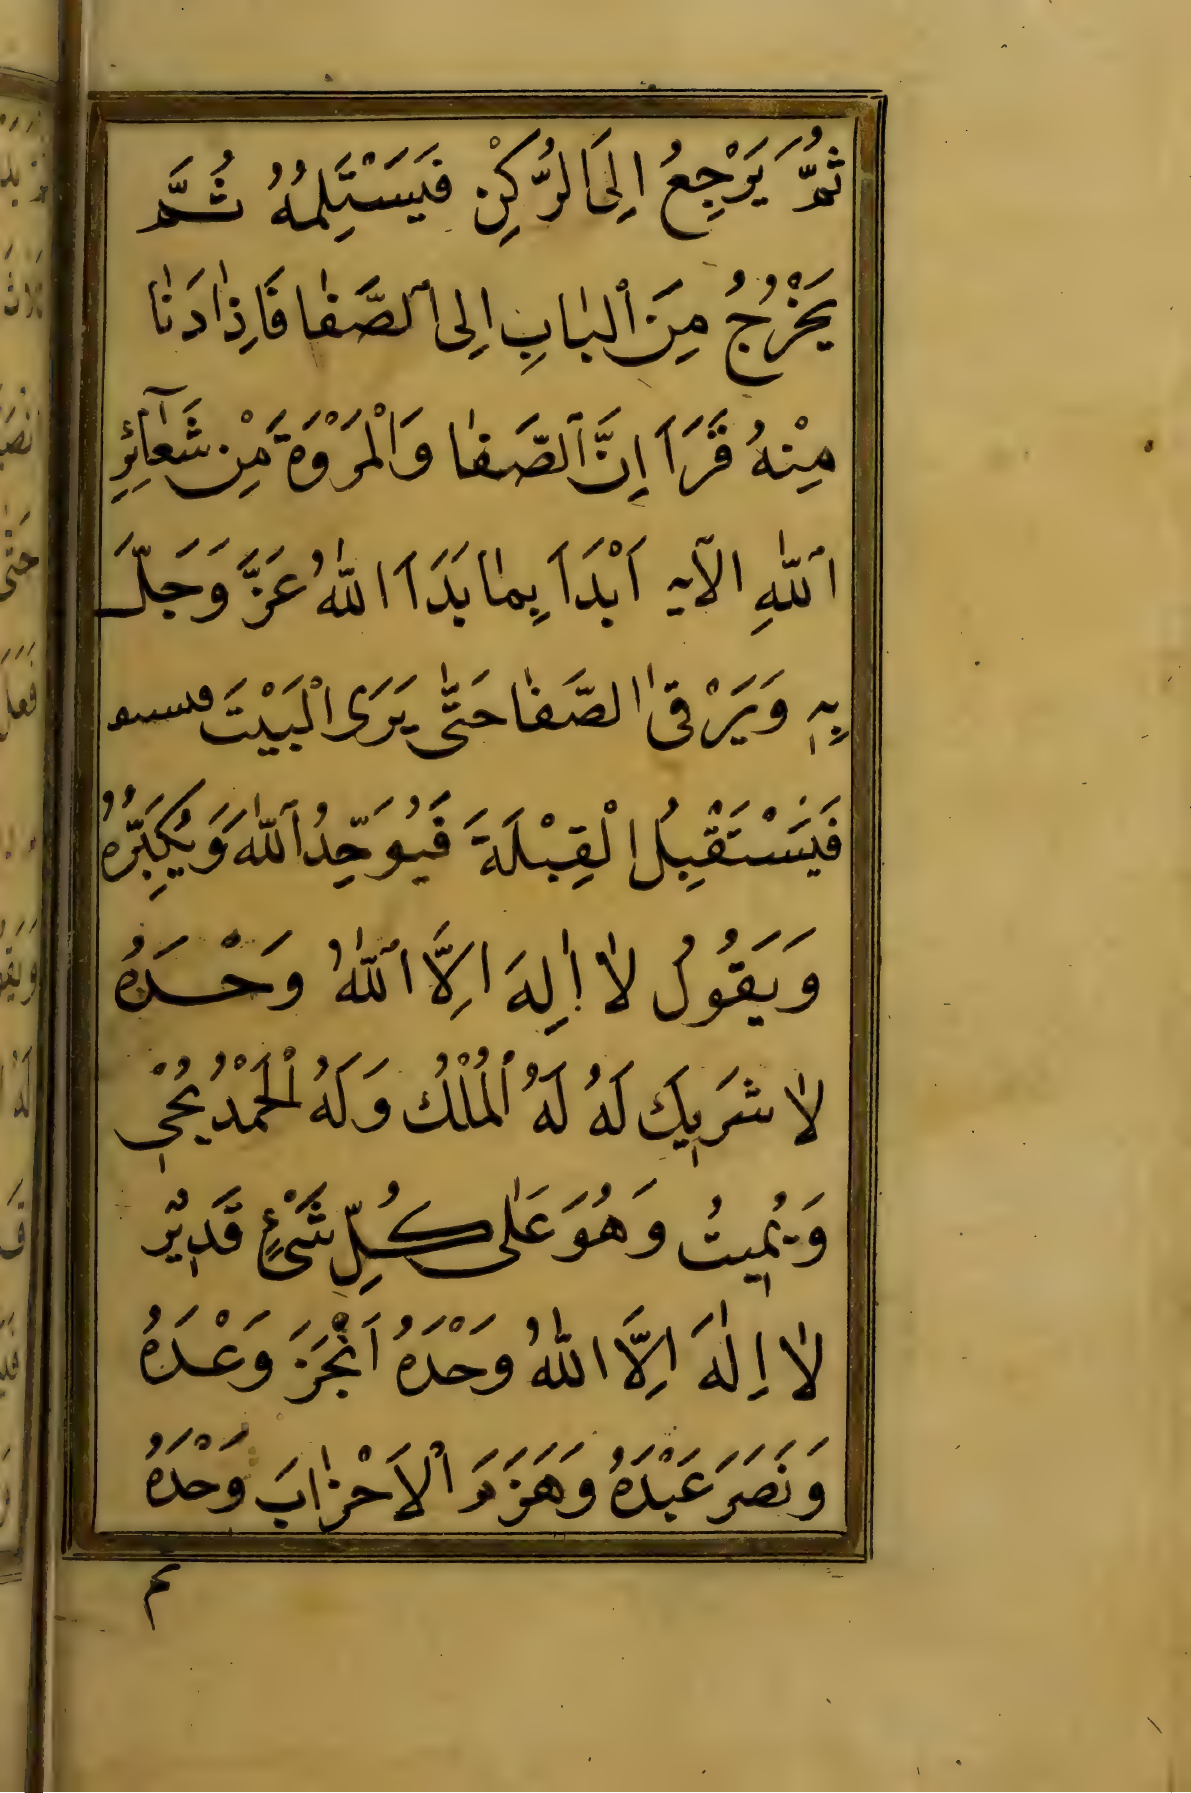 ثُمَّ يَرْجِعُ اِلَى الرُّكْنِ فَيَسْتَلِمُهُ ثُمَّ
يَخْرُجُ مِنَ الْبَابِ اِلَى الصَّفَا فَاِذَا دَنَا
مِنْهُ قَرَاَ اِنَّ الصَّفَا وَالْمَرْوَةَ مِنْ شَعَآئِرِ
اللّٰهِ الْآيه اَبْدَاَ بِمَا بَدَاَ اللّٰهُ عَزَّ وَجَلَّ
بِهِ وَيَرْقَى الصَّفَا حَتّٰى يَرَى الْبَيْتَ
فَيَسْتَقْبِلُ الْقِبْلَةَ فَيُوَحِّدُ اللّٰهَ وَيُكَبِّرُهُ
وَيَقُولُ لَا اِلٰهَ اِلَّا اللّٰهُ وَحْدَهُ
لَا شَرِيكَ لَهُ لَهُ الْمُلْكُ وَلَهُ الْحَمْدُ يُحْيِي
وَيُمِيتُ وَهُوَ عَلٰى كُلِّ شَيْءٍ قَدِيرٌ
لَا اِلٰهَ اِلَّا اللّٰهُ وَحْدَهُ اَنْجَزَ وَعْدَهُ
وَنَصَرَ عَبْدَهُ وَهَزَمَ الْاَحْزَابَ وَحْدَهُ